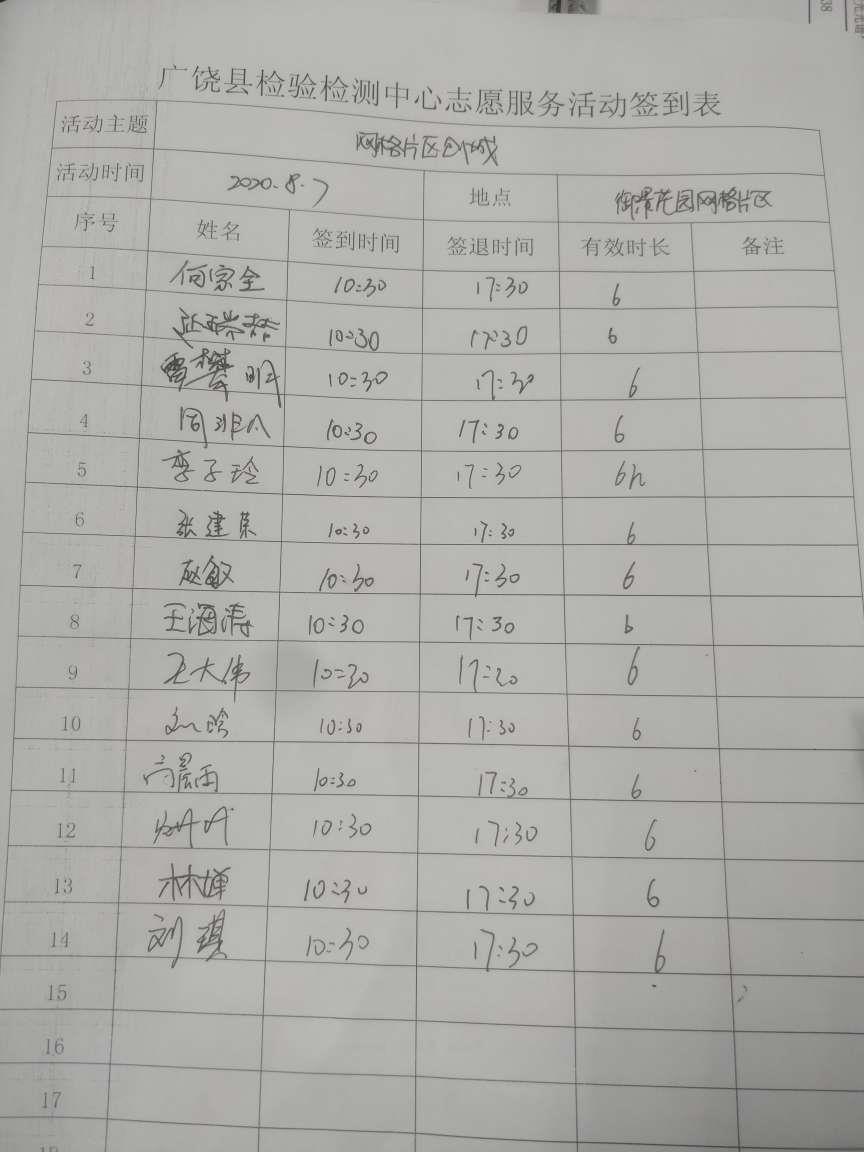 广饶县检验检测中心志愿服务活动签到表
活动主题 网格片区创城
活动时间 2020.8.7 地点 御景花园网格片区
序号 姓名 签到时间 签退时间 有效时长 备注
1 何家全 10:30 17:30 6
2 10:30 17:30 6
3 10:30 17:30 6
4 10:30 17:30 6
5 李子玲 10:30 17:30 6h
6 张建荣 10:30 17:30 6
7 赵敏 10:30 17:30 6
8 王海涛 10:30 17:30 6
9 王大伟 10:30 17:30 6
10 10:30 17:30 6
11 高晨雨 10:30 17:30 6
12 10:30 17:30 6
13 林婵 10:30 17:30 6
14 刘琪 10:30 17:30 6
15
16
17